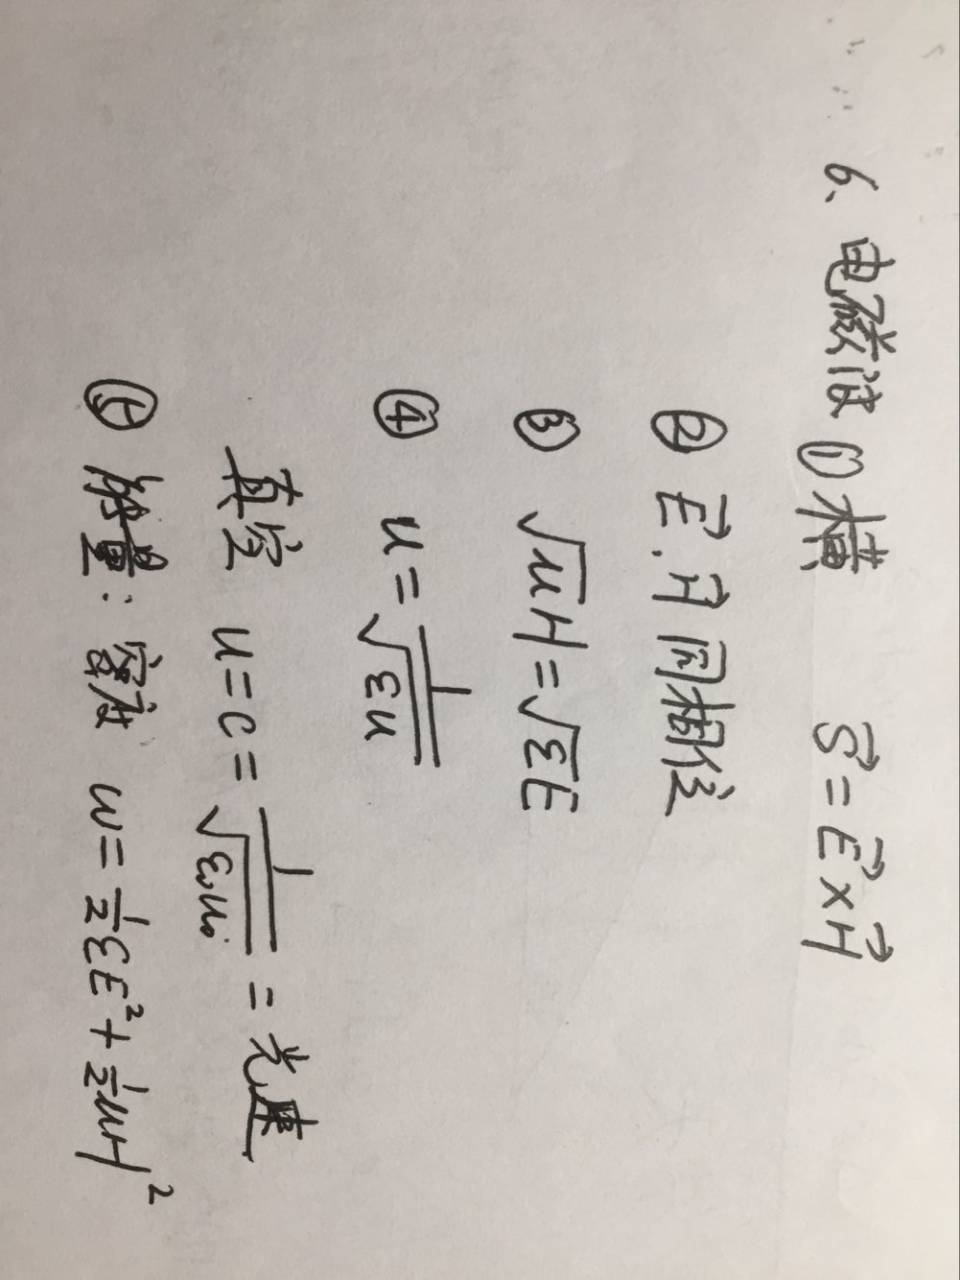 6、电磁波 ①横 S⃗ = E⃗ × H⃗
② E⃗、H⃗ 同相位
③ √μH = √εE
④ u = 1/√εμ
真空 u = c = 1/√ε₀μ₀ = 光速
⑤ 能量：密度 w = ½εE² + ½μH²